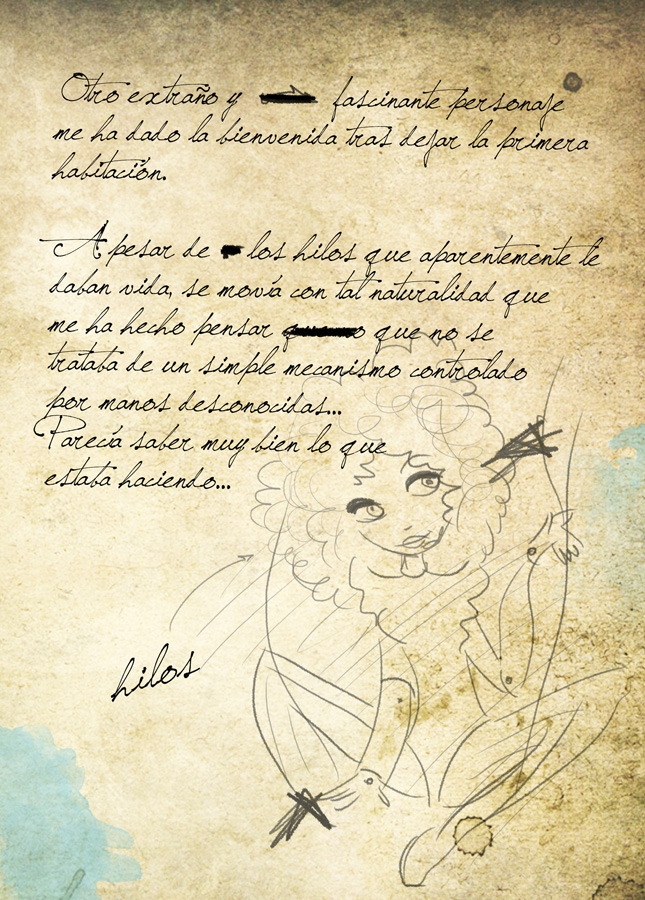 Otro extraño y fascinante personaje
me ha dado la bienvenida tras dejar la primera
habitación.
A pesar de los hilos que aparentemente le
daban vida, se movía con tal naturalidad que
me ha hecho pensar que no se
trataba de un simple mecanismo controlado
por manos desconocidas...
Parecía saber muy bien lo que
estaba haciendo...
hilos